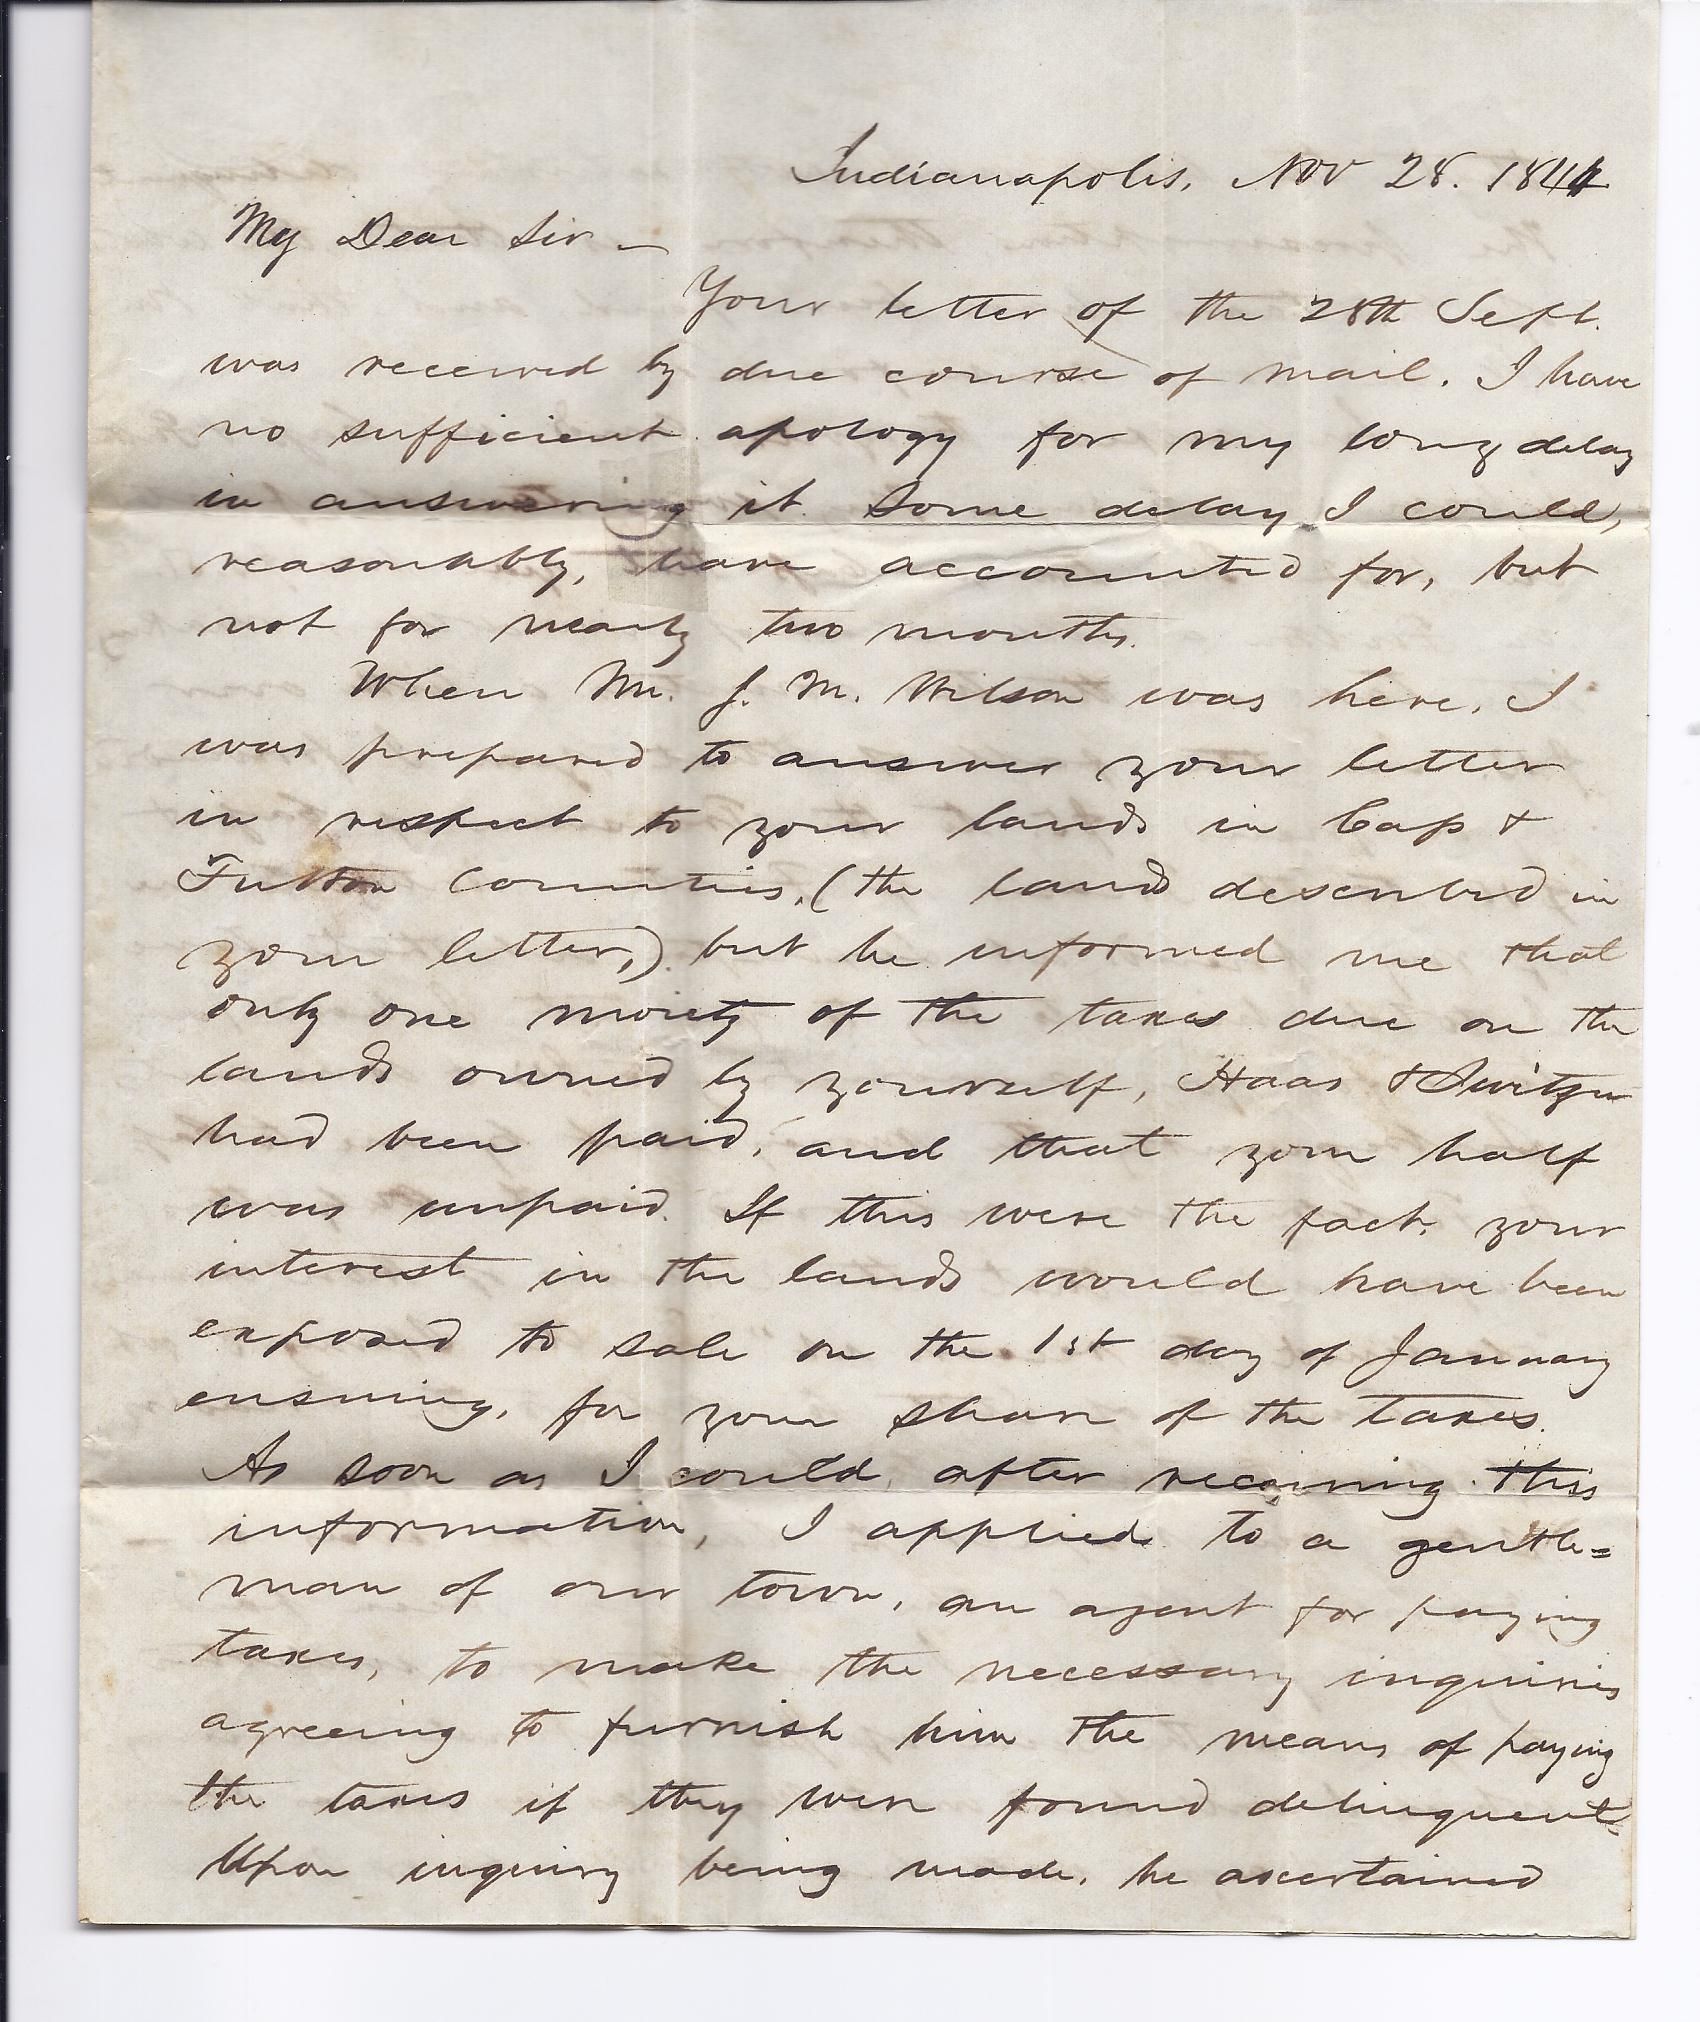 Indianapolis, Nov 28. 1844
My Dear Sir —
Your letter of the 28th Sept.
was received by due course of mail. I have
no sufficient apology for my long delay
in answering it. Some delay I could,
reasonably, have accounted for, but
not for nearly two months.
When Mr. J. M. Wilson was here, I
was prepared to answer your letter
in respect to your lands in Cass &
Fulton Counties, (the lands described in
your letter,) but he informed me that
only one moiety of the taxes due on the
lands owned by yourself, Haas & Switzer
had been paid, and that your half
was unpaid. If this were the fact, your
interest in the lands would have been
exposed to sale on the 1st day of January
ensuing, for your share of the taxes.
As soon as I could, after receiving this
information, I applied to a gentle=
man of our town, an agent for paying
taxes, to make the necessary inquiries
agreeing to furnish him the means of paying
the taxes if they were found delinquent.
Upon inquiry being made, he ascertained